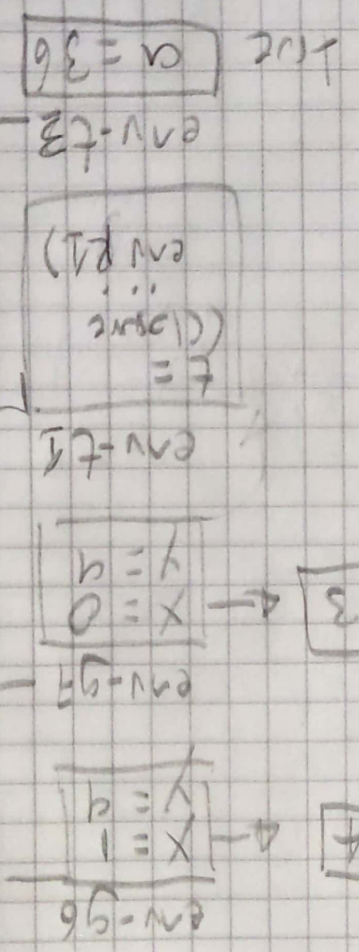 env-g6
X = 1
Y = 9
env-g7
3
X = 0
Y = 9
env-f1
f =
(closure
...
env f1)
env-f3
a = 36